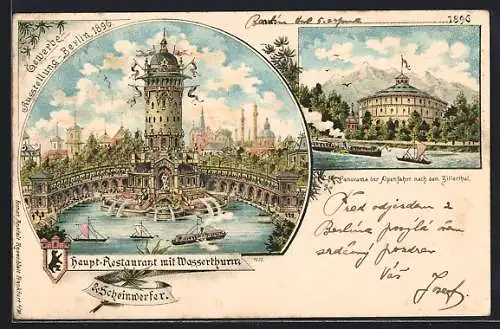 Gewerbe
Ausstellung - Berlin 1896
1896
Panorama der Alpenfahrt nach dem Zillerthal.
Haupt-Restaurant mit Wasserthurm
& Scheinwerfer.
Před odjezdem z
Berlína posýlá vám
srdečný pozdrav
Váš Josef.